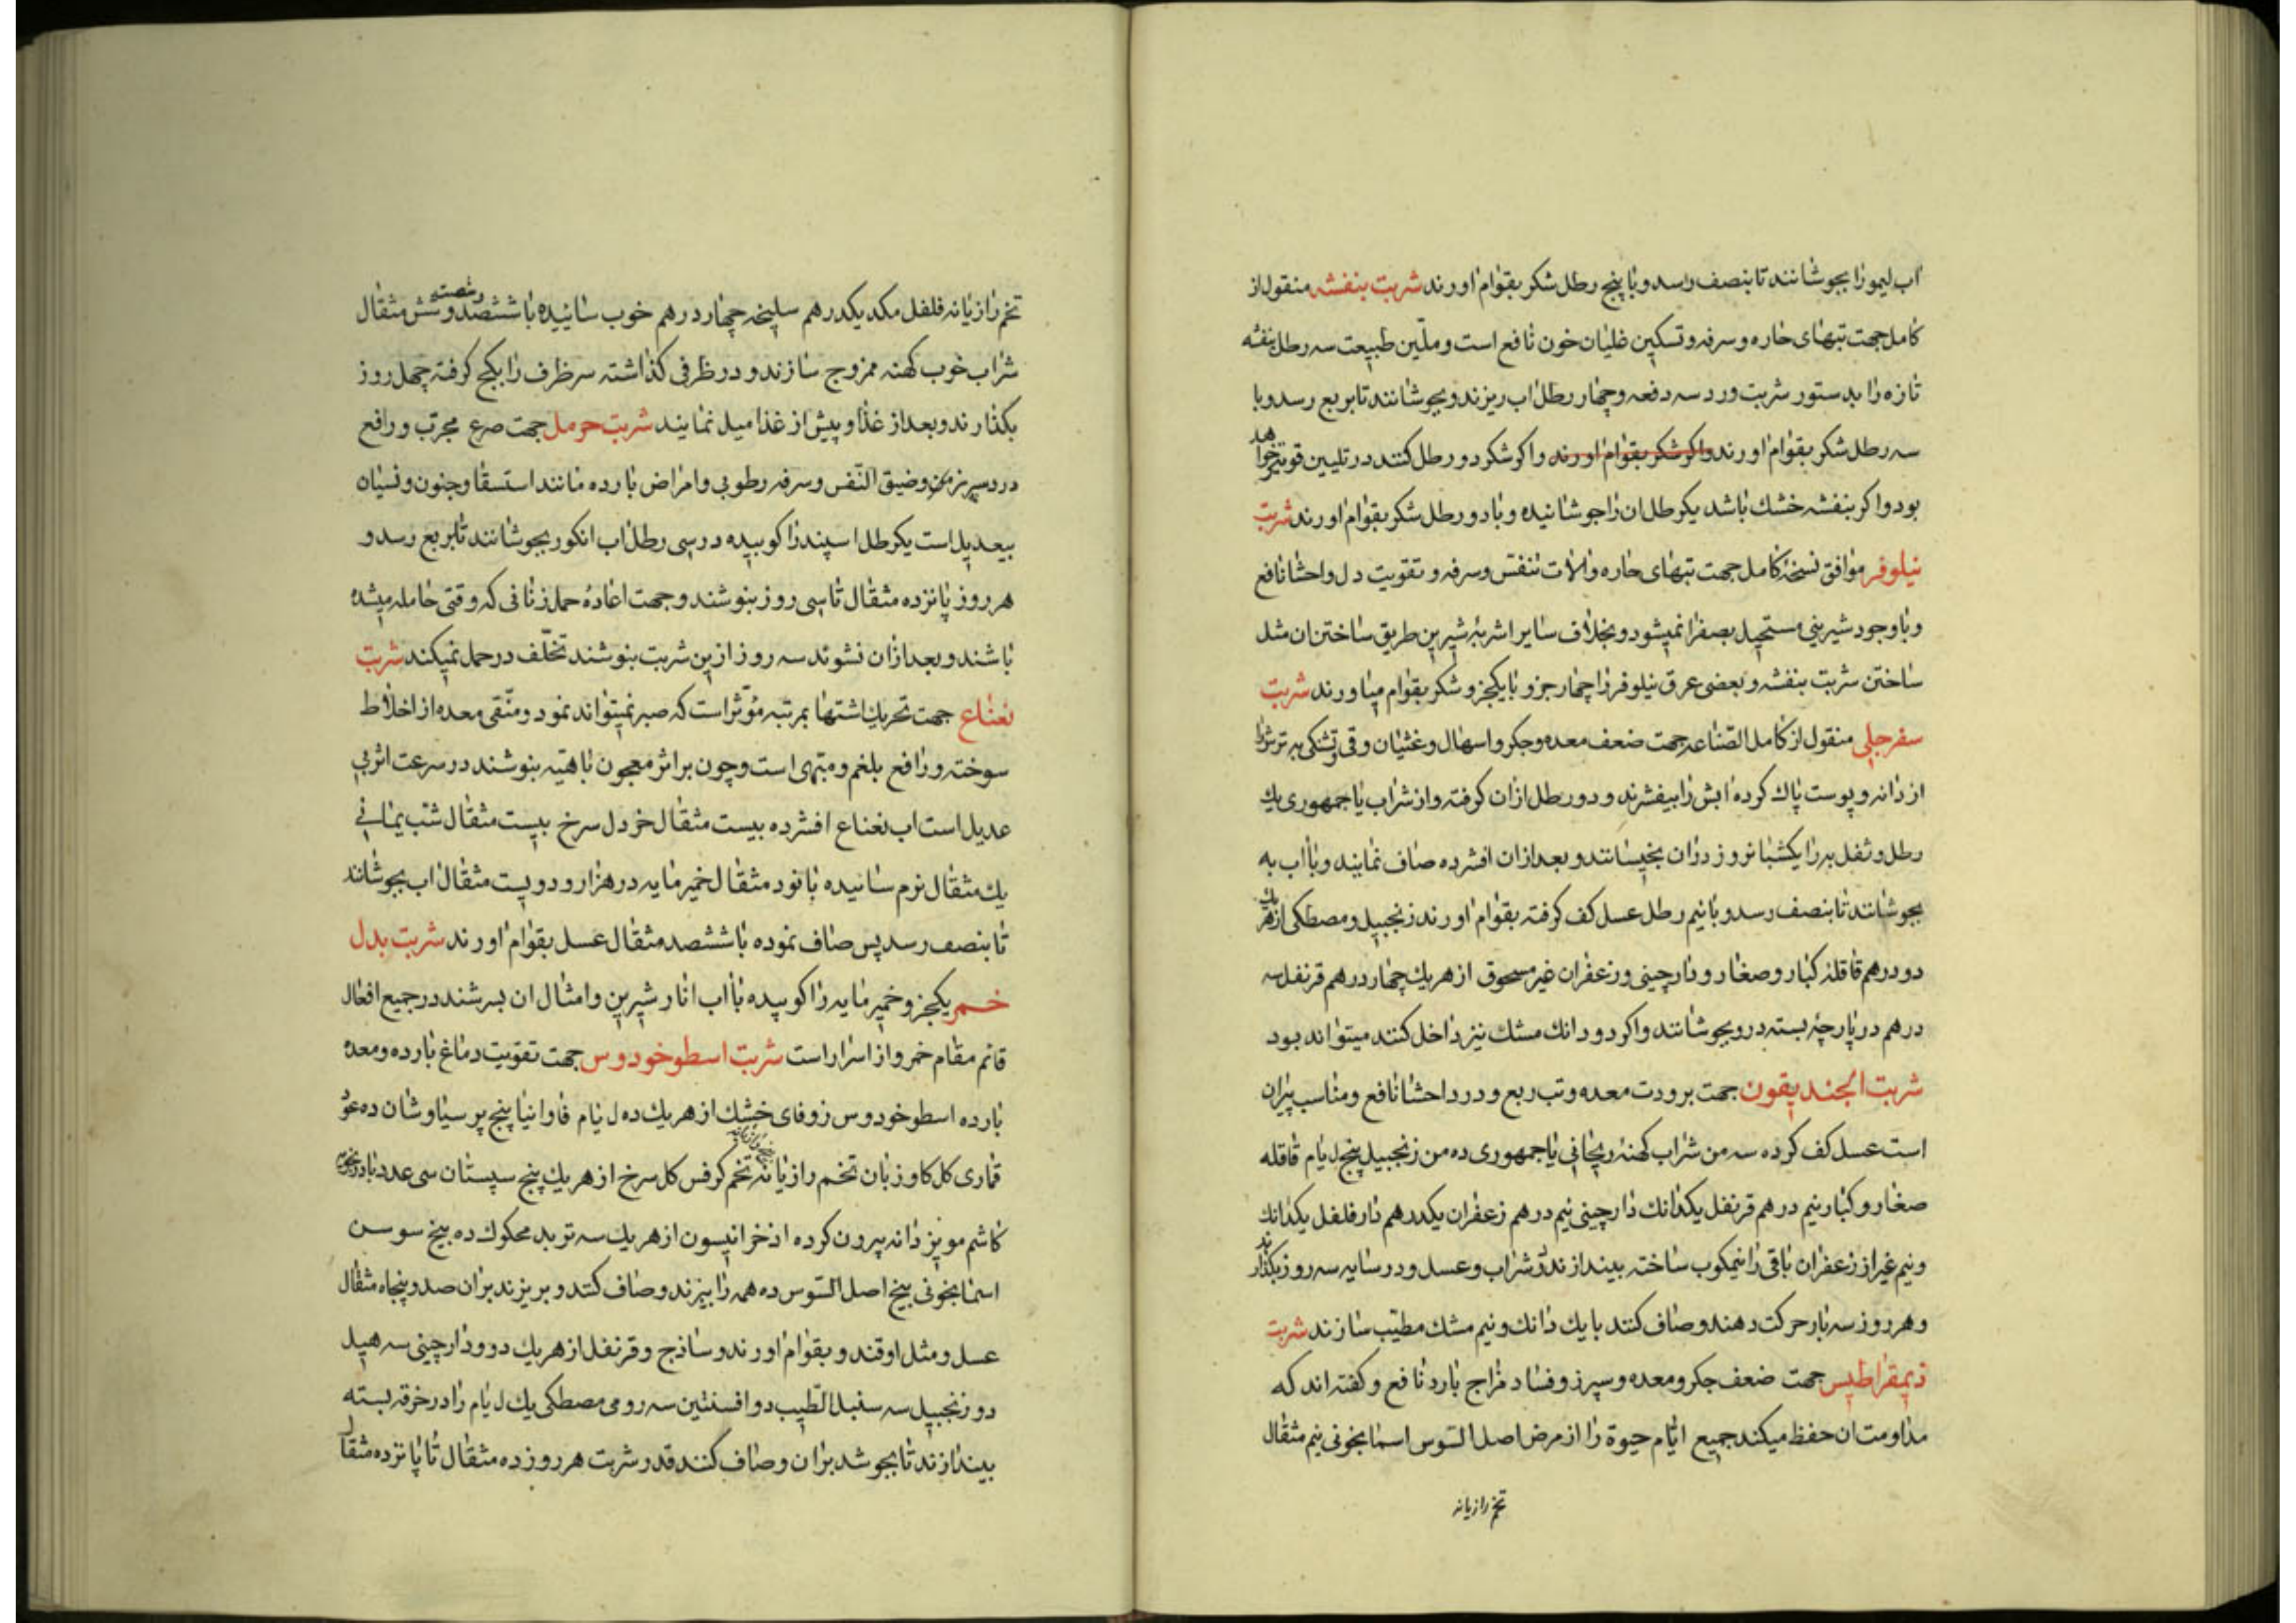 اب لیمو را بجوشانند تا بنصف رسد و با پنج رطل شکر بقوام اورند شربت بنفشه منقول از
کامل جهت تبهای حاره و سرفه و تسکین غلیان خون نافع است و ملین طبیعت سه رطل بنفشه
تازه را بدستور شربت ورد سه دفعه و چهار رطل اب ریزند و بجوشانند تا بربع رسد و با
سه رطل شکر بقوام اورند واکر شکر بقوام اورند واکر شکر دو رطل کنند در تلیین قویتر خواهد
بود واکر بنفشه خشك باشد یکرطل ان را جوشانیده و با دو رطل شکر بقوام اورند شربت
نیلوفر موافق نسخۀ کامل جهت تبهای حاره والات تنفس و سرفه و تقویت دل واحشا نافع
و با وجود شیرینی مستحیل بصفرا نمیشود و بخلاف سایر اشربۀ شیرین طریق ساختن ان مثل
ساختن شربت بنفشه و بعضی عرق نیلوفر را چهار جزو با یکجزو شکر بقوام میاورند شربت
سفرجلی منقول از کامل الصناعه جهت ضعف معده وجکر واسهال وغثیان وقی وتشنکی به ترش را
از دانه و پوست پاك کرده ابش را بیفشرند و دو رطل ازان کرفته واز شراب یا جمهوری یك
رطل و ثفل به را یکشبانروز دران بخیسانند و بعد ازان افشرده صاف نمایند و با اب به
بجوشانند تا بنصف رسد و با نیم رطل عسل کف کرفته بقوام اورند زنجبیل و مصطکی از هر یك
دو درهم قاقله کبار و صغار و دارچینی و زعفران غیر مسحوق از هر یك چهار درهم قرنفل سه
درهم در پارچۀ بسته در و بجوشانند واکر دو دانك مشك نیز داخل کنند میتواند بود
شربت الجندیقون جهت برودت معده و تب ربع و درد احشا نافع و مناسب پیران
است عسل کف کرده سه من شراب کهنۀ ریحانی یا جمهوری ده من زنجبیل پنج ل یام قاقله
صغار و کبار نیم درهم قرنفل یکدانك دارچینی نیم درهم زعفران یکدرهم دارفلفل یکدانك
و نیم غیر از زعفران باقی را نیمکوب ساخته بیندازند در شراب و عسل و در سایه سه روز بکذارند
و هر روز سه بار حرکت دهند و صاف کنند با یك دانك و نیم مشك مطیب سازند شربت
ذیمقراطیس جهت ضعف جکر و معده و سپرز و فساد مزاج بارد نافع و کفته اند که
مداومت ان حفظ میکند جمیع ایام حیوة را از مرض اصل السوس اسمانجونی نیم مثقال
تخم رازیانه
تخم رازیانه فلفل مکد یکدرهم سلیخه چهار درهم خوب سائیده با ششصد و شصت و شش مثقال
شراب خوب کهنه ممزوج سازند و در ظرفی کذاشته سر ظرف را بکج کرفته چهل روز
بکذارند و بعد از غذا و پیش از غذا میل نمایند شربت حرمل جهت صرع مجرب و رافع
درد سر مزمن وضیق النفس و سرفه رطوبی وامراض بارده مانند استسقا و جنون و نسیان
بیعدیل است یکرطل اسپند را کوبیده در سی رطل اب انکور بجوشانند تا بربع رسد و
هر روز پانزده مثقال تا سی روز بنوشند و جهت اعادۀ حمل زنانی که وقتی حامله میشده
باشند و بعد ازان نشوند سه روز ازین شربت بنوشند تخلف در حمل نمیکند شربت
نعناع جهت تحریك اشتها بمرتبه مؤثر است که صبر نمیتواند نمود و منقی معده از اخلاط
سوخته و رافع بلغم و مبهی است و چون بر اثر معجون باهیه بنوشند در سرعت اثر بی
عدیل است اب نعناع افشرده بیست مثقال خردل سرخ بیست مثقال شب یمانی
یك مثقال نرم سائیده با نود مثقال خمیر مایه در هزار و دویست مثقال اب بجوشانند
تا بنصف رسد پس صاف نموده با ششصد مثقال عسل بقوام اورند شربت بدل
خمر یکجزو خمیر مایه را کوبیده با اب انار شیرین و امثال ان بسرشند در جمیع افعال
قائم مقام خمر واز اسرار است شربت اسطوخودوس جهت تقویت دماغ بارده و معده
بارده اسطوخودوس زوفای خشك از هر یك ده ل یام فاوانیا پنج پرسیاوشان ده عود
قماری کل کاوزبان تخم رازیانه تخم کرفس کل سرخ از هر یك پنج سپستان سی عدد بادرنجبویه
کاشم مویز دانه بیرون کرده اذخر انیسون از هر یك سه تربد محکوك ده بیخ سوسن
اسمانجونی بیخ اصل السوس ده همه را بپزند و صاف کنند و بریزند بران صد و پنجاه مثقال
عسل و مثل او قند و بقوام اورند و ساذج و قرنفل از هر یك دو و دارچینی سه هیل
دو زنجبیل سه سنبل الطیب دو افسنتین سه رومی مصطکی یك ل یام را در خرقه بسته
بیندازند تا بجوشد بران و صاف کنند قدر شربت هر روز ده مثقال تا پانزده مثقال